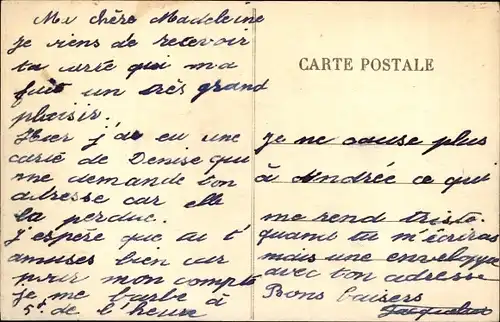 Ma chère Madeleine
je viens de recevoir
ta carte qui m'a
fait un très grand
plaisir.
Hier j'ai eu une
carte de Denise qui
me demande ton
adresse car elle
l'a perdue.
j'espère que tu t'
amuses bien car
pour mon compte
je me barbe à
5f de l'heure
CARTE POSTALE
Je ne cause plus
à Andrée ce qui
me rend triste.
quand tu m'écriras
mets une enveloppe
avec ton adresse
Bons baisers
Jacqueline